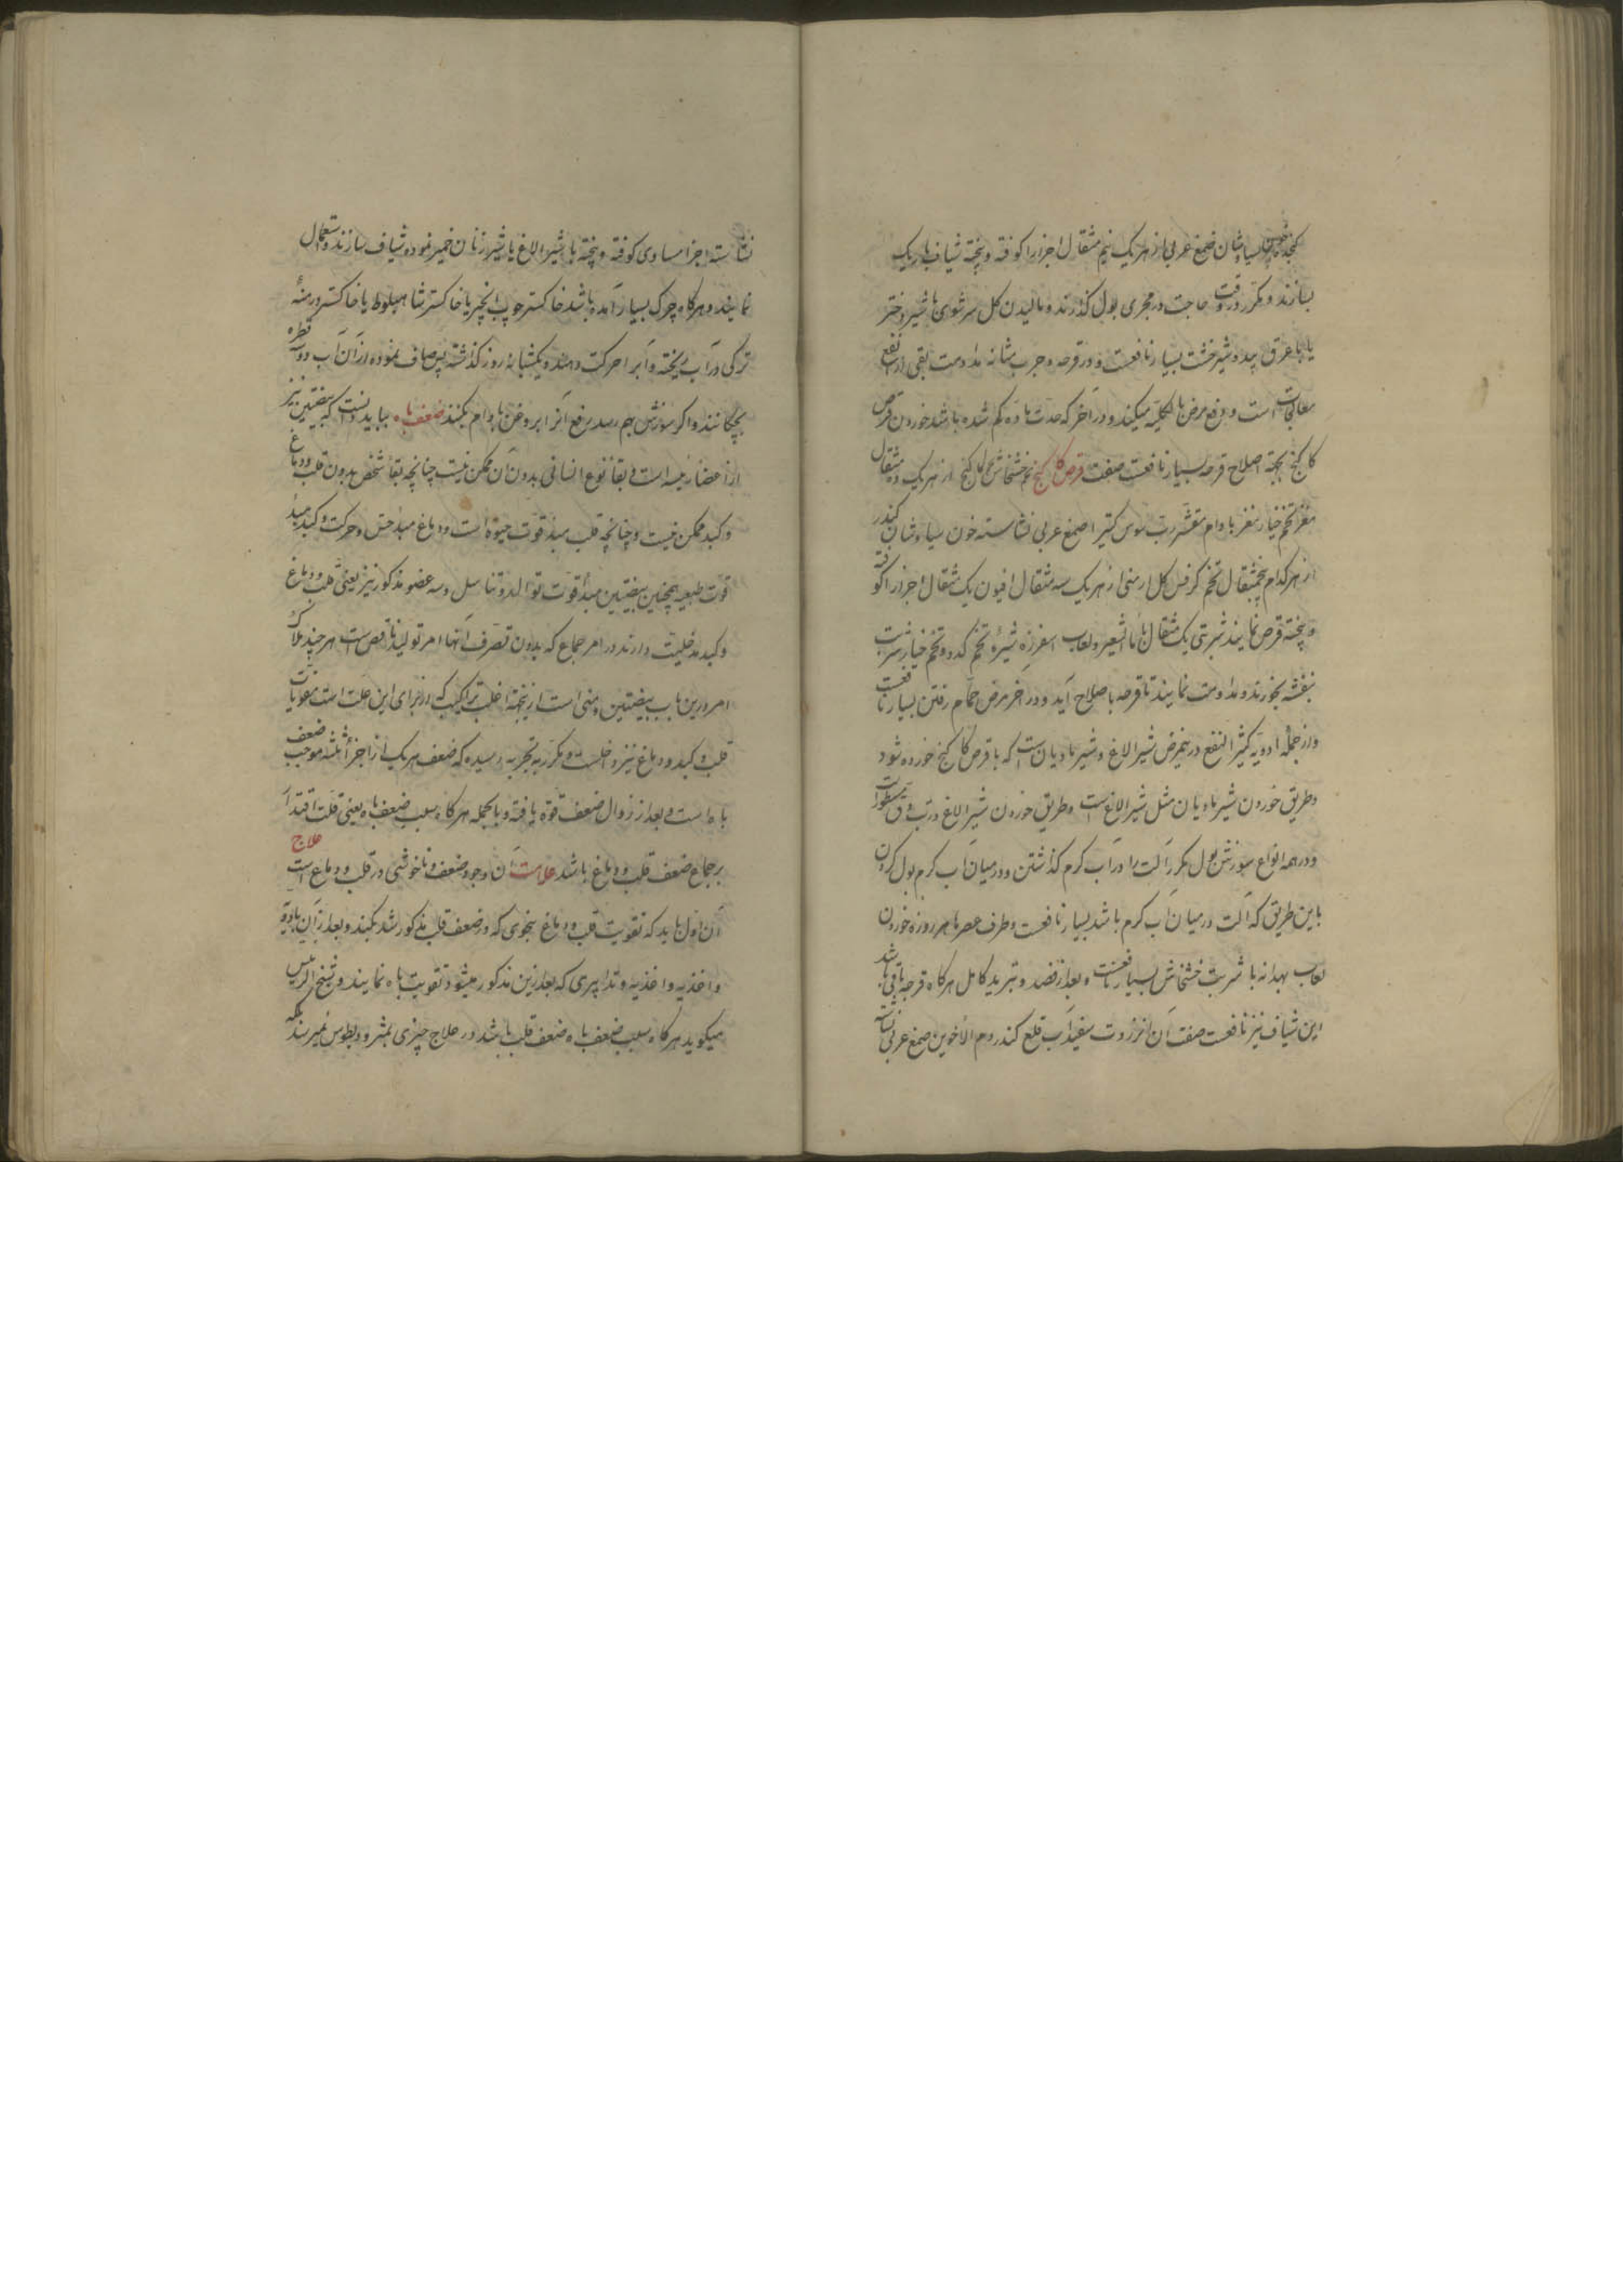 کنجد خون سیاوشان صمغ عربی از هر یک نیم مثقال اجزا را کوفته و پخته شیاف باریک
بسازند و مکرر در وقت حاجت در مجری بول گذارند و مالیدن گل سرشوی با شیر دختر
یا با عرق بید و شیرخشت بسیار نافعست و در قرحه و جرب مثانه مداومت بقی انفع
معالجات است و دفع مرض بالکلیه میکند و در آخر که حدت ماده کم شده باشد خوردن قرص
کاکنج بجهة اصلاح قرحه بسیار نافعست صفت قرص کاکنج تخم خشخاش حب کاکنج از هر یک ده مثقال
مغز تخم خیار مغز بادام مقشر رب سوس کتیرا صمغ عربی نشاسته خون سیاوشان کندر
از هر کدام پنجمثقال تخم کرفس گل ارمنی از هر یک سه مثقال افیون یک مثقال اجزا را کوفته
و پخته قرص نمایند شربتی یک مثقال با ماء الشعیر و لعاب اسفرزه شیرهٔ تخم کدو و تخم خیار شربت
بنفشه بخورند و مداومت نمایند تا قرحه باصلاح آید و در آخر مرض حمام رفتن بسیار نافعست
و از جملهٔ ادویه کثیر النفع درینمرض شیر الاغ و شیر مادیان است که با قرص کاکنج خورده شود
و طریق خوردن شیر مادیان مثل شیر الاغ است و طریق خوردن شیر الاغ در تب دق مسطور است
و در همه انواع سوزش بول مکرر آلت را در آب گرم گذاشتن و در میان آب گرم بول کردن
باین طریق که آلت در میان آب گرم باشد بسیار نافعست و طرف عصرها هر روزه خوردن
لعاب بهدانه با شربت خشخاش بسیار نافعست و بعد از فصد و تبرید کامل هرگاه قرحه باقی باشد
این شیاف نیز نافعست صفت آن انزروت سفیداب قلع کندر دم الاخوین صمغ عربی نشاسته
نشاسته اجزا مساوی کوفته و پخته با شیر الاغ یا شیر زنان خمیر نموده شیاف سازند و استعمال
نمایند و هرگاه چرک بسیار آمده باشد خاکستر چوب انجیر یا خاکستر شاهبلوط یا خاکستر درمنهٔ
ترکی در آب ریخته و آبرا حرکت دهند و یکشبانه روز گذاشته پس صاف نموده از آن آب دو سه قطره
بچکانند و اگر سوزش بهم رسد رفع آنرا بروغن بادام بکنند ضعف باه بباید دانست که بیضتین نیز
از اعضا رئیسه است و بقا نوع انسانی بدون آن ممکن نیست چنانچه بقا شخص بدون قلب و دماغ
و کبد ممکن نیست و چنانچه قلب مبدأ قوت حیوة است و دماغ مبدأ حس و حرکت و کبد مبدأ
قوت طبیعیه همچنین بیضتین مبدأ قوت توالد و تناسل و سه عضو مذکور نیز یعنی قلب و دماغ
و کبد مدخلیت دارند در امر جماع که بدون تصرف آنها امر تولید ناقص است هر چند ملاک
امر درین باب بیضتین و منی است ازینجهة اغلب تراکیب که از برای این علت است مقویات
قلب و کبد و دماغ نیز داخلست و مکرر بتجربه رسیده که ضعف هر یک از اجزاء ثلثه موجب ضعف
باه است و بعد از زوال ضعف قوة یافته و بالجمله هرگاه سبب ضعف باه یعنی قلت اقتدار
بر جماع ضعف قلب و دماغ باشد علامت آن وجود ضعف و ناخوشی در قلب و دماغ است علاج
آن اول باید که تقویت قلب و دماغ بنحوی که در ضعف قلب مذکور شد بکنند و بعد از آن بادویه
و اغذیه و تدابیری که بعد ازین مذکور میشود تقویت باه نمایند و شیخ الرئیس
میگوید هرگاه سبب ضعف باه ضعف قلب باشد در علاج چیزی بمثرودیطوس نمیرسد بلکه